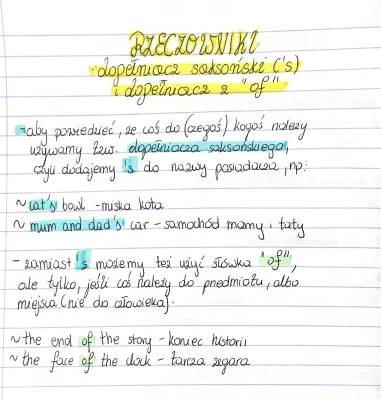 RZECZOWNIKI
-dopełniacz saksoński ('s)
i dopełniacz z "of"
-aby powiedzieć, że coś do (czegoś) kogoś należy
używamy tzw. dopełniacza saksońskiego,
czyli dodajemy 's do nazwy posiadacza, np:
~ cat's bowl - miska kota
~ mum and dad's car - samochód mamy i taty
- zamiast 's możemy też użyć słówka "of",
ale tylko, jeśli coś należy do przedmiotu, albo
miejsca (nie do człowieka).
~ the end of the story - koniec historii
~ the face of the clock - tarcza zegara